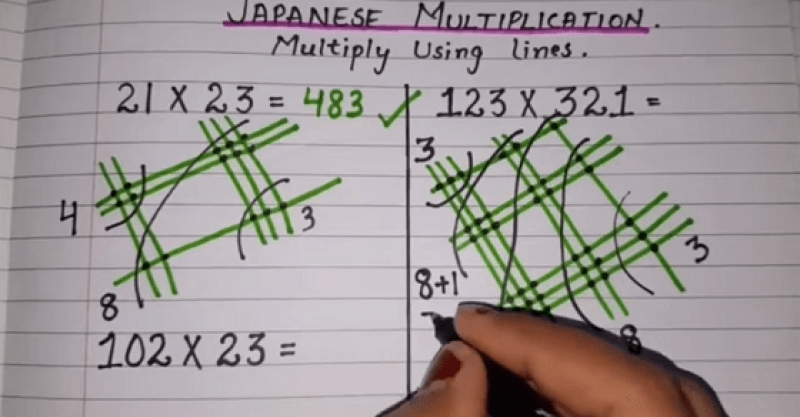 JAPANESE MULTIPLICATION.
Multiply Using lines.
21 X 23 = 483 ✓
4
3
8
102 X 23 =
123 X 321 =
3
8+1
3
8